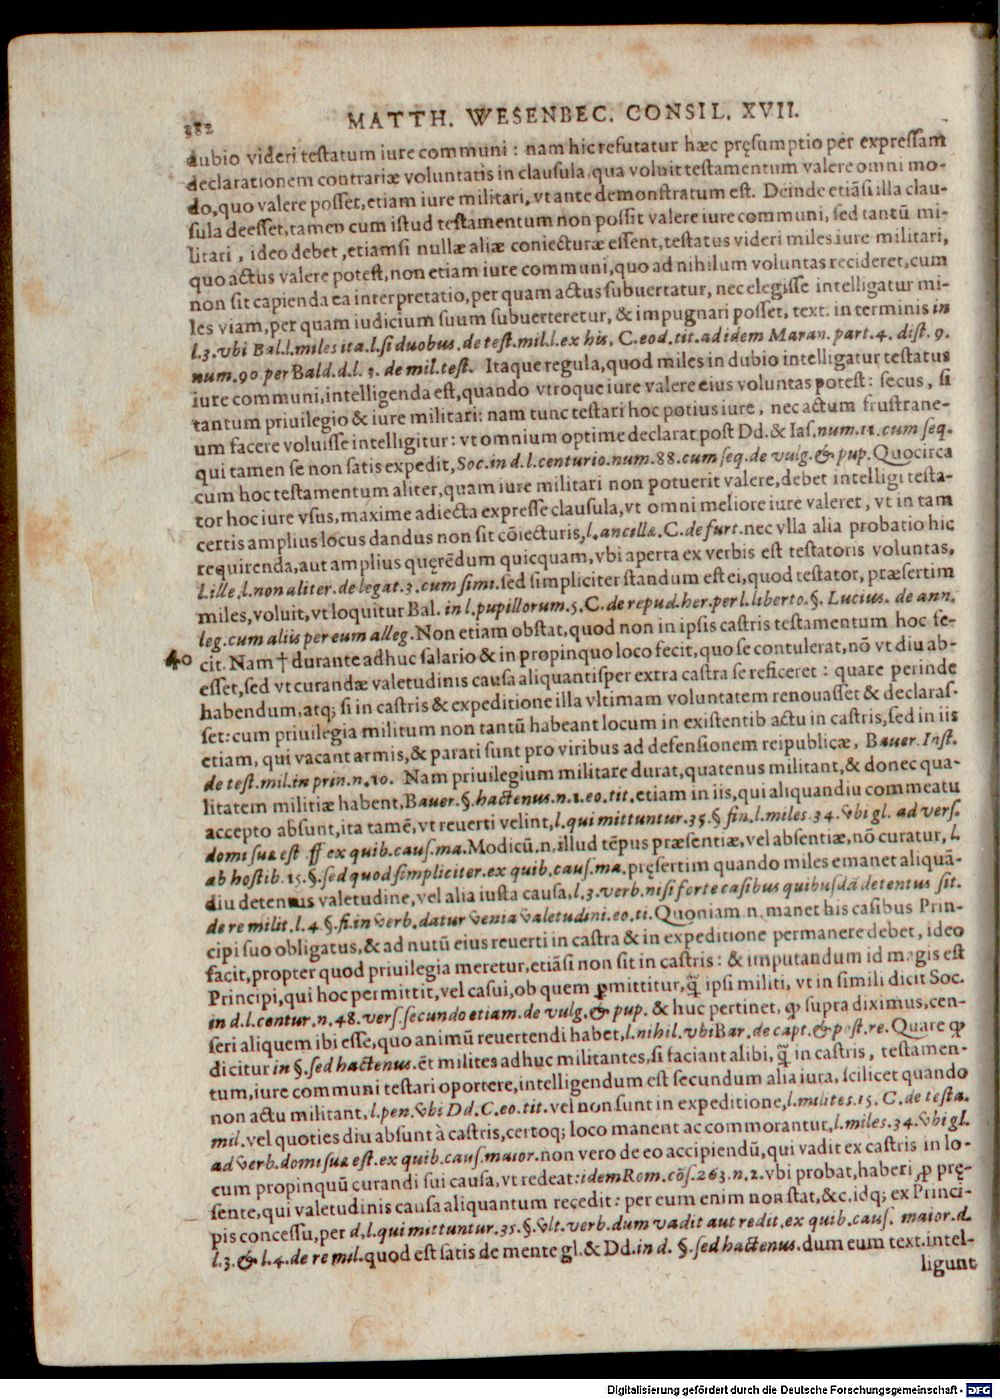 882 MATTH. WESENBEC. CONSIL. XVII.
dubio videri testatum iure communi : nam hic refutatur hæc pręsumptio per expressam
declarationem contrariæ voluntatis in clausula, qua voluit testamentum valere omni mo-
do, quo valere posset, etiam iure militari, vt ante demonstratum est. Deinde etiãsi illa clau-
sula deesset, tamen cum istud testamentum non possit valere iure communi, sed tantũ mi-
litari , ideo debet , etiamsi nullæ aliæ coniecturæ essent, testatus videri miles iure militari,
quo actus valere potest, non etiam iure communi, quo ad nihilum voluntas recideret, cum
non sit capienda ea interpretatio, per quam actus subuertatur, nec elegisse intelligatur mi-
les viam, per quam iudicium suum subuerteretur, & impugnari posset, text. in terminis in
l.3. vbi Bal. l. miles ita. l. si duobus. de test. mil. l. ex his, C. eod. tit. ad idem Maran. part. 4. dist. 9.
num. 90. per Bald. d. l. 3. de mil. test. Itaque regula, quod miles in dubio intelligatur testatus
iure communi, intelligenda est, quando vtroque iure valere eius voluntas potest: secus, si
tantum priuilegio & iure militari: nam tunc testari hoc potius iure , nec actum frustrane-
um facere voluisse intelligitur: vt omnium optime declarat post Dd. & Ias. num. 11. cum seq.
qui tamen se non satis expedit, Soc. in d. l. centurio. num. 88. cum seq. de vulg. & pup. Quocirca
cum hoc testamentum aliter, quam iure militari non potuerit valere, debet intelligi testa-
tor hoc iure vsus, maxime adiecta expresse clausula, vt omni meliore iure valeret, vt in tam
certis amplius locus dandus non sit cõiecturis, l. ancillæ. C. de furt. nec vlla alia probatio hic
requirenda, aut amplius quęrēdum quicquam, vbi aperta ex verbis est testatoris voluntas,
l. ille, l. non aliter. de legat. 3. cum simi. sed simpliciter standum est ei, quod testator, præsertim
miles, voluit, vt loquitur Bal. in l. pupillorum. 5. C. de repud. her. per l. liberto. §. Lucius. de ann.
leg. cum aliis per eum alleg. Non etiam obstat, quod non in ipsis castris testamentum hoc fe-
40 cit. Nam † durante adhuc salario & in propinquo loco fecit, quo se contulerat, nõ vt diu ab-
esset, sed vt curandæ valetudinis causa aliquantisper extra castra se reficeret : quare perinde
habendum, atq; si in castris & expeditione illa vltimam voluntatem renouasset & declaras-
set: cum priuilegia militum non tantũ habeant locum in existentib actu in castris, sed in iis
etiam, qui vacant armis, & parati sunt pro viribus ad defensionem reipublicæ, Bauer. Inst.
de test. mil. in prin. n. 10. Nam priuilegium militare durat, quatenus militant, & donec qua-
litatem militiæ habent, Bauer. §. hactenus. n. 1. eo. tit. etiam in iis, qui aliquandiu commeatu
accepto absunt, ita tamẽ, vt reuerti velint, l. qui mittuntur. 35. § fin. l. miles. 34. vbi gl. ad vers.
domi suæ est ff ex quib. caus. ma. Modicũ. n. illud tẽpus præsentiæ, vel absentiæ, nõ curatur, l.
ab hostib. 15. §. sed quod simpliciter. ex quib. caus. ma. pręsertim quando miles emanet aliquã-
diu detentus valetudine, vel alia iusta causa, l. 3. verb. nisi forte casibus quibusdã detentus sit.
de re milit. l. 4. §. fi. in verb. datur venia valetudini. eo. ti. Quoniam. n. manet his casibus Prin-
cipi suo obligatus, & ad nutũ eius reuerti in castra & in expeditione permanere debet, ideo
facit, propter quod priuilegia meretur, etiãsi non sit in castris : & imputandum id magis est
Principi, qui hoc permittit, vel casui, ob quem ꝑmittitur, q̃ ipsi militi, vt in simili dicit Soc.
in d. l. centur. n. 48. vers. secundo etiam. de vulg. & pup. & huc pertinet, qꝫ supra diximus, cen-
seri aliquem ibi esse, quo animũ reuertendi habet, l. nihil. vbi Bar. de capt. & post. re. Quare qꝫ
dicitur in §. sed hactenus. ẽt milites adhuc militantes, si faciant alibi, q̃ in castris , testamen-
tum, iure communi testari oportere, intelligendum est secundum alia iura, scilicet quando
non actu militant, l. pen. vbi Dd. C. eo. tit. vel non sunt in expeditione, l. milites. 15. C. de testa.
mil. vel quoties diu absunt à castris, certoq; loco manent ac commorantur, l. miles. 34. vbi gl.
ad verb. domi suæ est. ex quib. caus. maior. non vero de eo accipiendũ, qui vadit ex castris in lo-
cum propinquũ curandi sui causa, vt redeat: idem Rom. cõs. 263. n. 2. vbi probat, haberi ꝓ prę-
sente, qui valetudinis causa aliquantum recedit : per eum enim non stat, &c. idq; ex Princi-
pis concessu, per d. l. qui mittuntur. 35. §. vlt. verb. dum vadit aut redit. ex quib. caus. maior. d.
l. 3. & l. 4. de re mil. quod est satis de mente gl. & Dd. in d. §. sed hactenus. dum eum text. intel-
ligunt
Digitalisierung gefördert durch die Deutsche Forschungsgemeinschaft - DFG